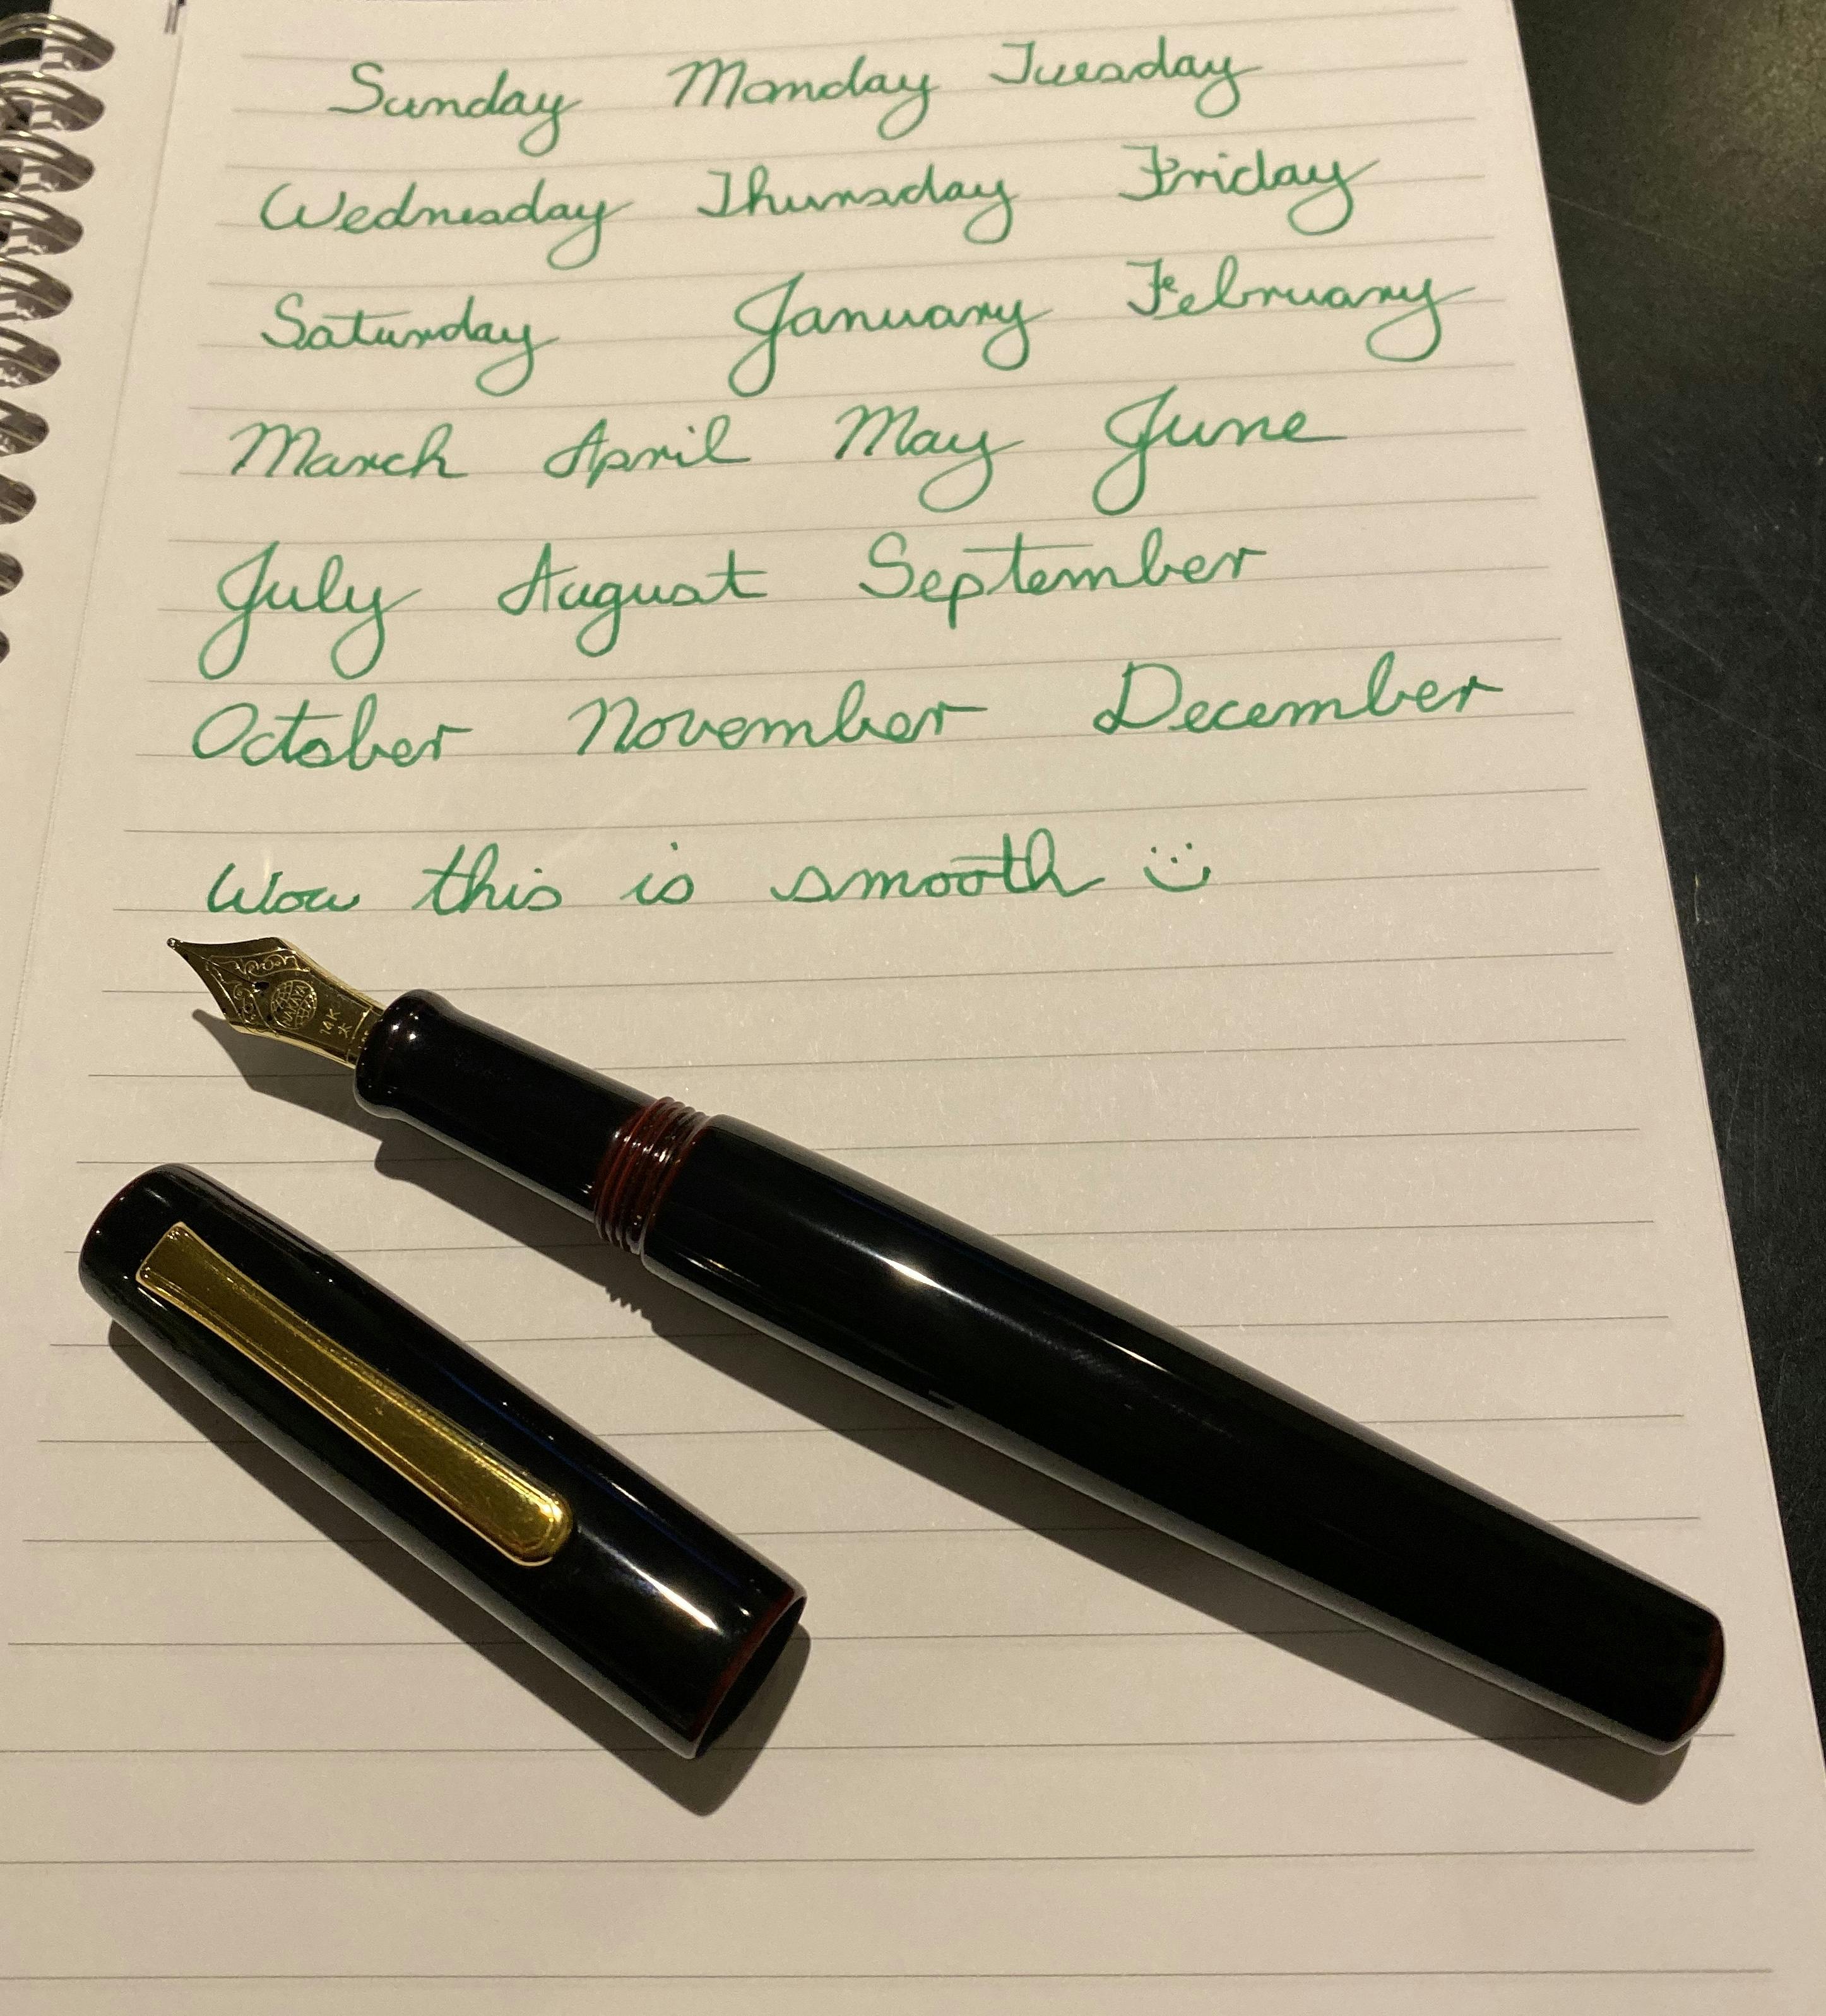 Sunday Monday Tuesday
Wednesday Thursday Friday
Saturday January February
March April May June
July August September
October November December
Wow this is smooth :)
NAKAYA
14K